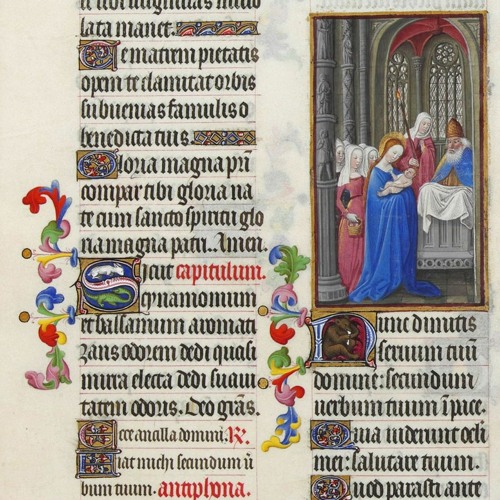 lata manet.
Te matrem pietatis
opem te clamitat orbis
subvenias famulis o
benedicta tuis.
Gloria magna pr̄i
compar tibi gloria na
te cum sancto spiritu glo
ria magna patri. Amen.
Sicut capitulum.
Cynamomum
et balsamum aromati
zans odorem dedi quasi
mirra electa dedi suavi
tatem odoris. Deo grās.
Ecce ancilla domini. R.
Fiat michi secundum ū
bium tuum. antiphona.
Nunc dimitis
servum tuū
domine: secundum
verbum tuum ī pace.
Quia viderunt oculi
mei: salutare tuum.
Quod parasti ante